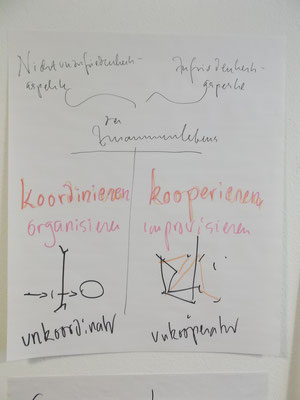 Nichtzufriedenheits-
aspekte
Zufriedenheits-
aspekte
des
Zusammenlebens
koordinieren
organisieren
unkoordinativ
kooperieren
improvisieren
unkooperativ